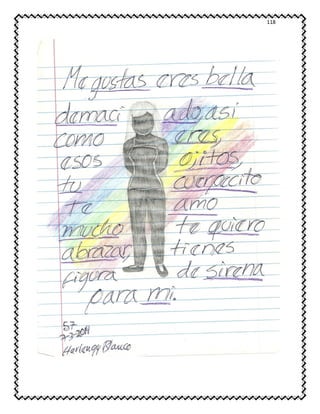 118
Me gustas eres bella
demaci ado, asi
como eres,
esos ojitos,
tu cuerpecito
te amo
mucho te quiero
abrazar, tienes
figura de sirena
para mi.